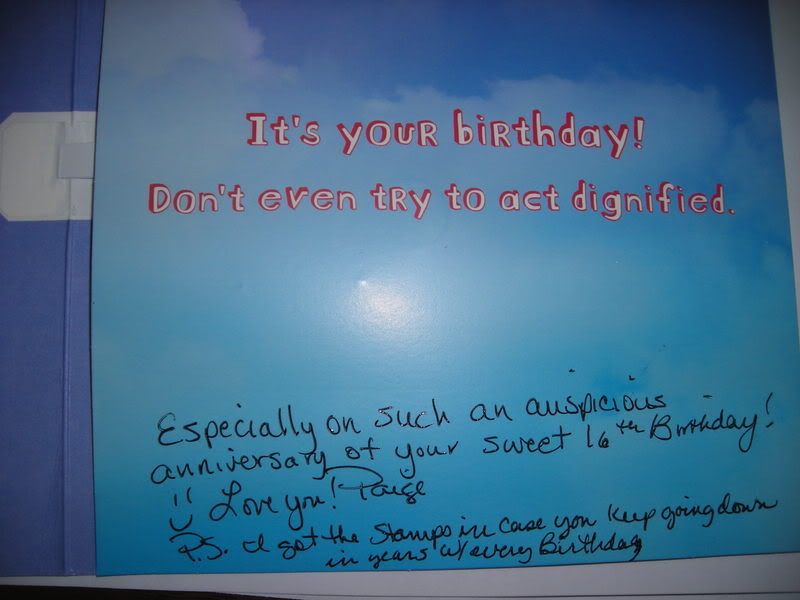 It's your birthday!
Don't even try to act dignified.
Especially on such an auspicious
anniversary of your sweet 16th Birthday!
Love you! Paige
P.S. I got the stamps in case you keep going down
in years w/ every Birthday